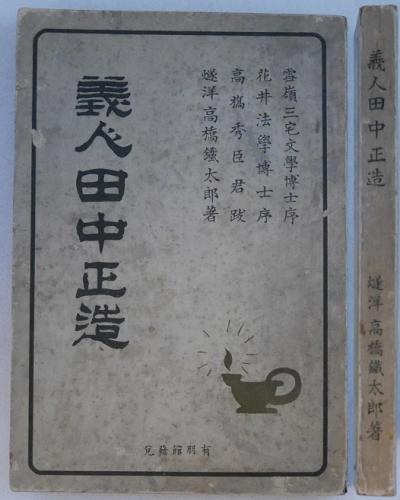 雪嶺三宅文學博士序
花井法學博士序
高橋秀臣君跋
燧洋高橋鐵太郎著
義人田中正造
有朋館發兌
義人田中正造
燧洋 高橋鐵太郎著